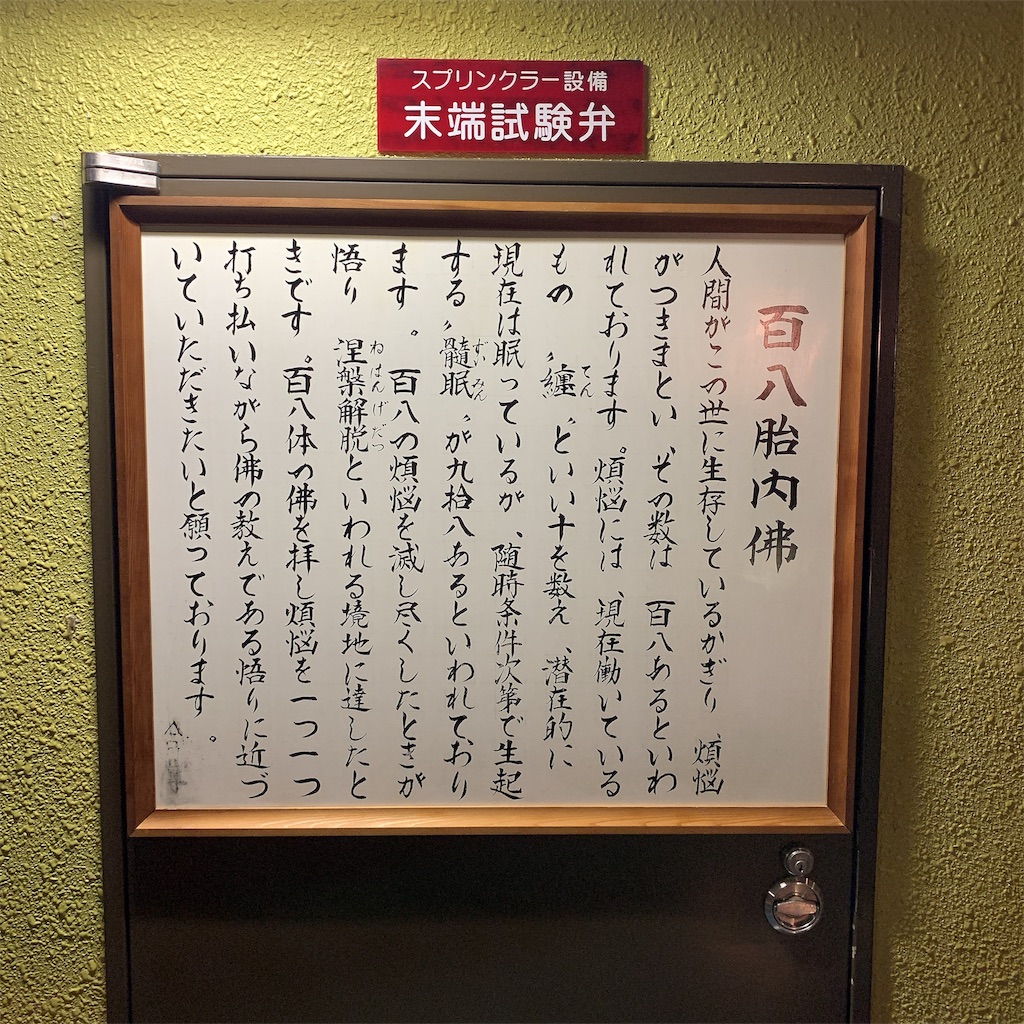 スプリンクラー設備
末端試験弁
百八胎内佛
人間がこの世に生存しているかぎり、煩悩
がつきまとい、その数は 百八あるといわ
れております。煩悩には、現在働いている
もの〝纏〟といい十を数え、潜在的に
てん
現在は眠っているが、随時条件次第で生起
する〝髄眠〟が九拾八あるといわれており
ずいみん
ます。百八の煩悩を滅し尽くしたときが
悟り 涅槃解脱といわれる境地に達したと
ねはんげだつ
きです。百八体の佛を拝し煩悩を一つ一つ
打ち払いながら佛の教えである悟りに近づ
いていただきたいと願っております。